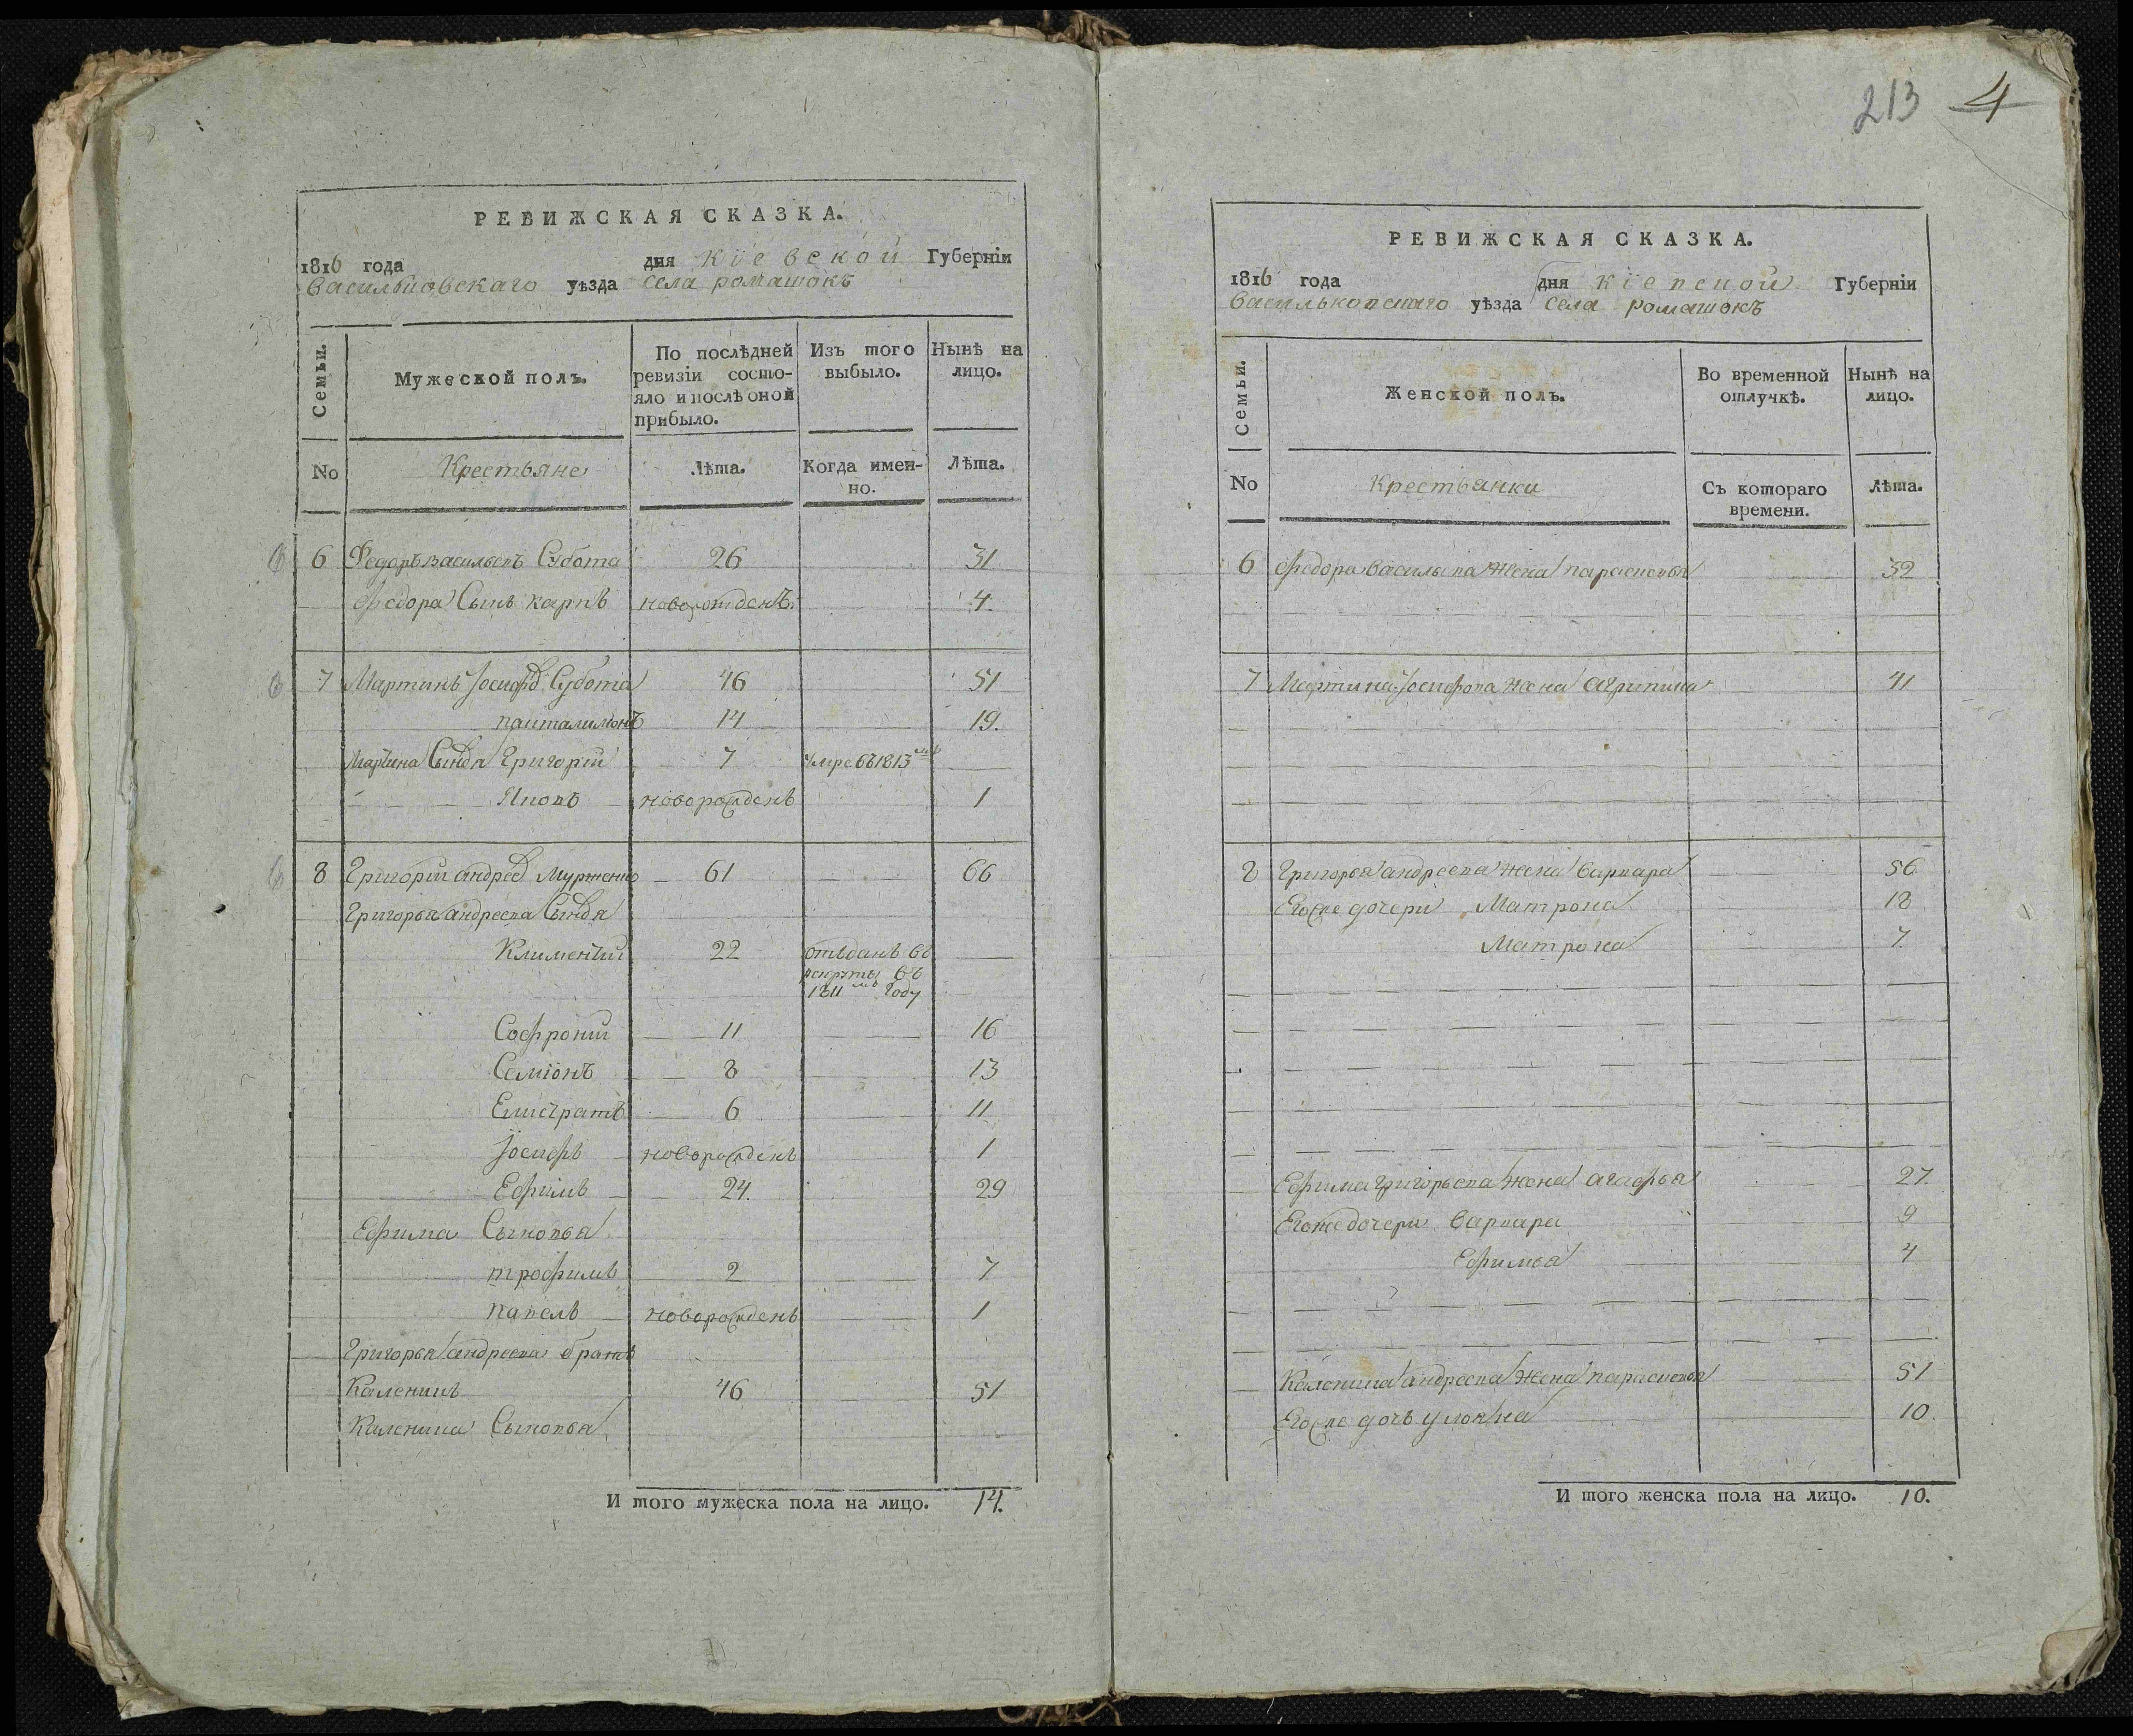 213 4
РЕВИЖСКАЯ СКАЗКА.
1816 года дня Кіевской Губерніи
Васильковскаго уѣзда села ромашокъ
Семьи.
Мужеской полъ.
По послѣдней ревизіи состо-
яло и послѣ оной
прибыло.
Изъ того
выбыло.
Нынѣ на
лицо.
No Крестьяне Лѣта. Когда имен-
но. Лѣта.
6 Федоръ васильевъ Субота 26 31
федора Сынъ карпъ новорожденъ 4.
7 Мартинъ Іосифов Субота 46 51
панталимонъ 14 19.
Мартина Сыновя Григорій 7 умре въ 1813мъ
Яковъ новорожденъ 1
8 Григорій андреев 61 66
Григорья андреева Сыновя
Климентій 22 отъданъ въ
рекруты въ
1811мъ году
Софроній 11 16
Семіонъ 8 13
Елистратъ 6 11
Іосифъ новорожденъ 1
Ефимъ 24. 29
Ефима Сыновья
трофимъ 2 7
павелъ новорожденъ 1
Григорья андреева братъ
Каленикъ 46 51
Каленика Сыновья
И того мужеска пола на лицо. 14.
РЕВИЖСКАЯ СКАЗКА.
1816 года дня Кіевской Губерніи
Васильковскаго уѣзда села ромашокъ
Семьи.
Женской полъ.
Во временной
отлучкѣ.
Нынѣ на
лицо.
No Крестьянки Съ котораго
времени. Лѣта.
6 федора васильева жена парасковья 32
7 Мартина Іосифова жена агрипина 41
8 Григорья андреева жена варвара 56
Егоже дочери Матрона 18
Матрона 7
Ефима григорьева жена агафья 27
Егоже дочери варвара 9
Ефимья 4
Каленика андреева жена парасковья 51
Егоже дочь улояна 10.
И того женска пола на лицо. 10.